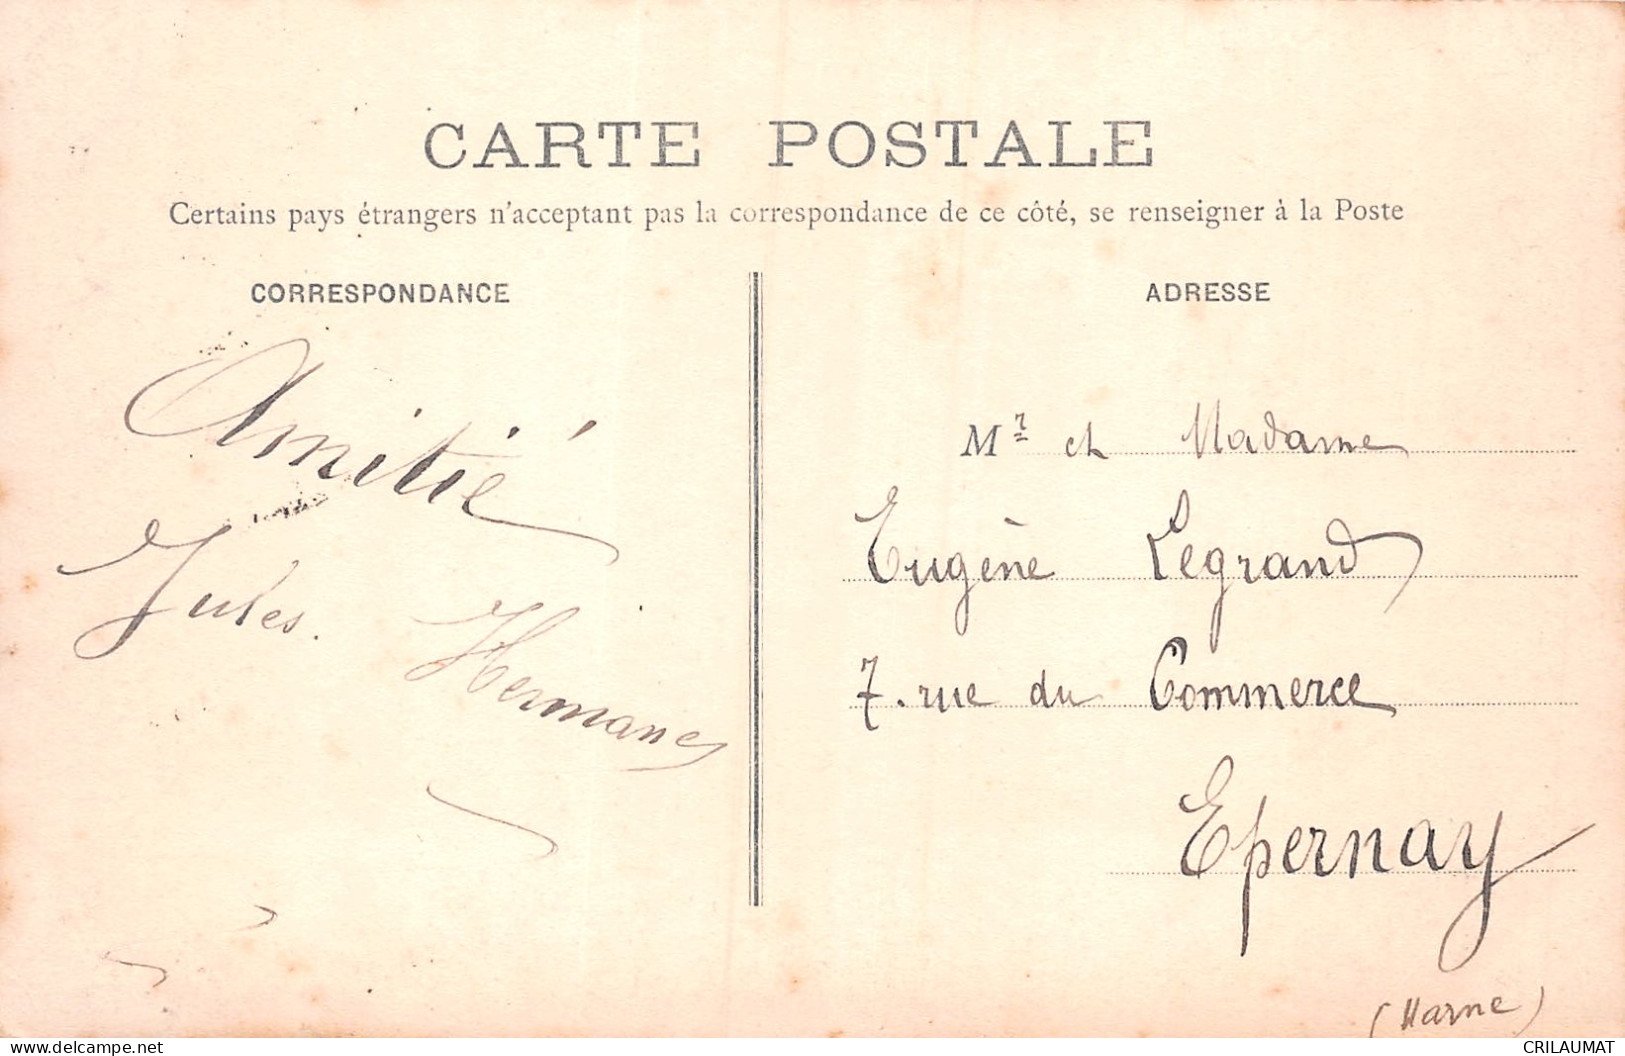 CARTE POSTALE
Certains pays étrangers n'acceptant pas la correspondance de ce côté, se renseigner à la Poste
CORRESPONDANCE
Amitié
Jules. Hermane
ADRESSE
Mr et Madame
Eugène Legrand
7. rue du Commerce
Epernay
(Marne)
www.delcampe.net
CRILAUMAT